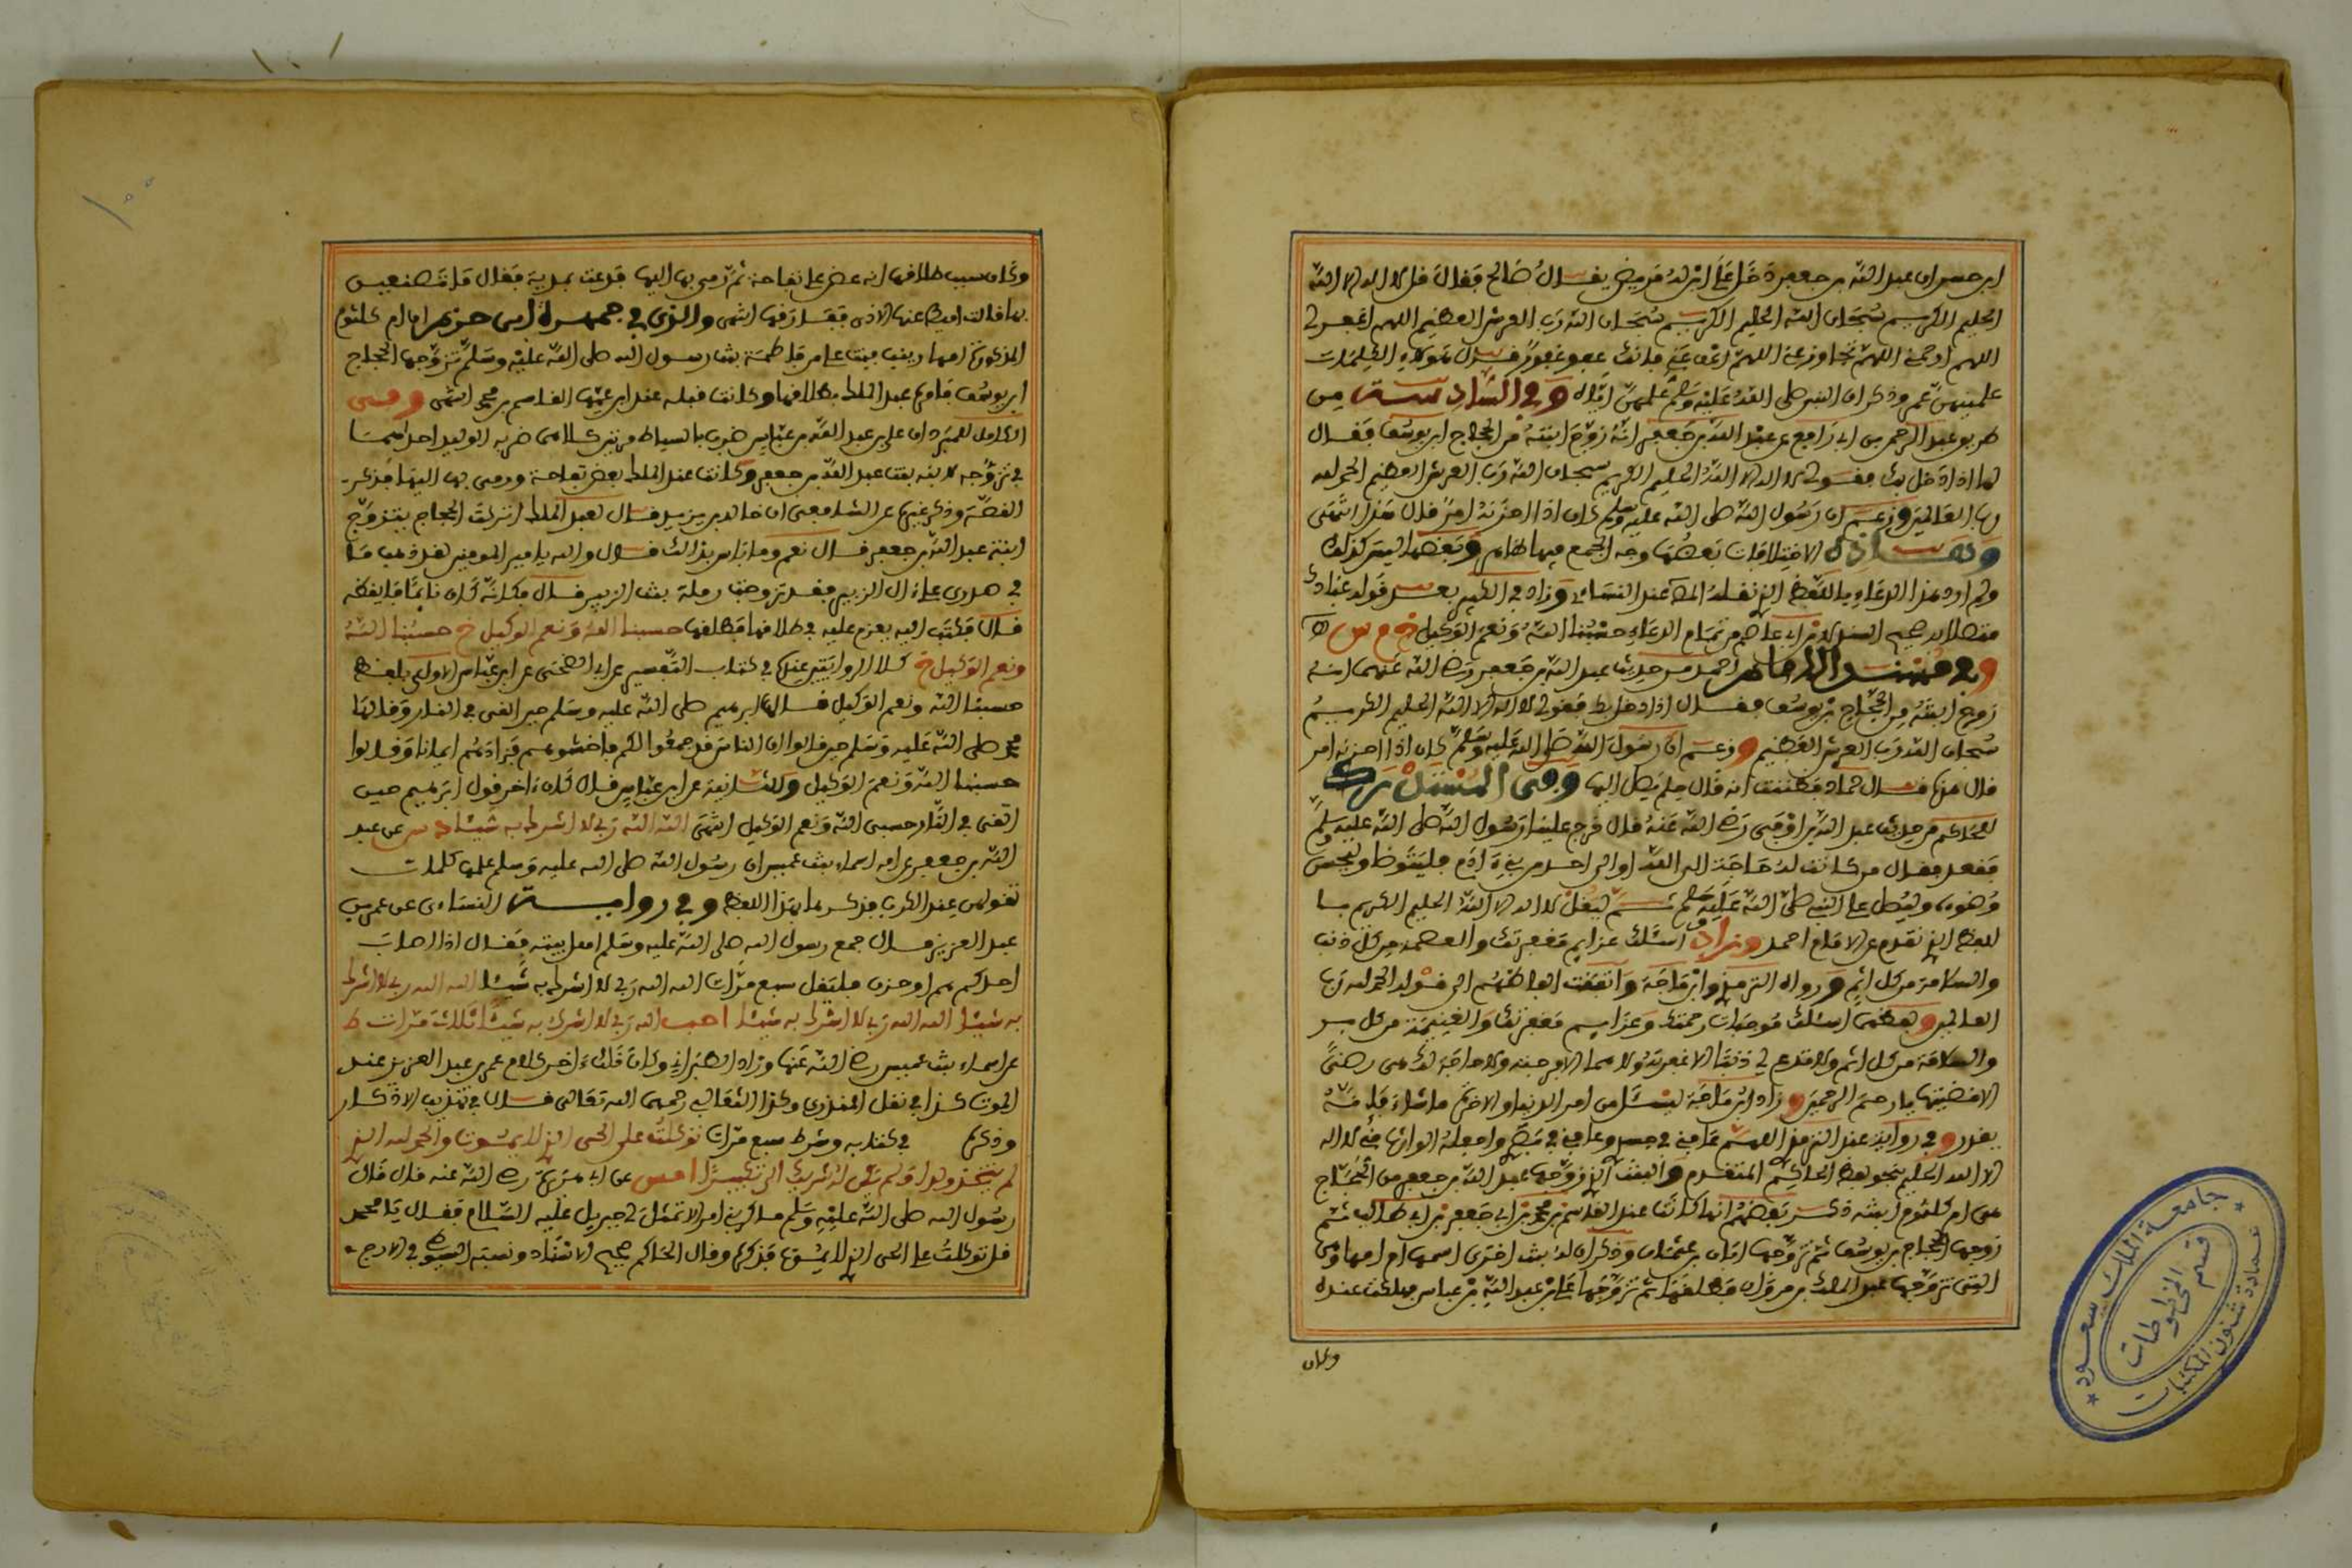 ابن حسن ان عبد الله بن جعفر دخل على ابن له مريض يقال له صالح فقال قل لا اله الا الله
الحليم الكريم سبحان الله الحليم الكريم سبحان الله رب العرش العظيم اللهم اغفر لي
اللهم ارحمني اللهم تجاوز عني اللهم اعف عني فانك عفو غفور قال هؤلاء الكلمات
علمنيهن عمي وذكر ان النبي صلى الله عليه وسلم علمهن اياه وفي السادسة من
طريق عبد الرحمن بن ابي رافع عن عبد الله بن جعفر انه زوج ابنته من الحجاج ابن يوسف فقال
لها اذا دخل بك فقولي لا اله الا الله الحليم الكريم سبحان الله رب العرش العظيم الحمد لله
رب العالمين وزعم ان رسول الله صلى الله عليه وسلم كان اذا احزنه امر قال هذا انتهى
وهذه الاختلافات بعضها وجه الجمع فيها ظاهر وبعضها ليس كذلك
ولم ار هذا الدعاء باللفظ الذي نقله الا عند النساءي وزاد في الكبير بعد قوله عبادك
متصلا به صحيح السند لابن ابي عاصم من تمام الدعاء حسبنا الله ونعم الوكيل خ م س
وفي مسند الامام احمد من حديث عبد الله بن جعفر رضي الله عنهما انه
زوج ابنته من الحجاج بن يوسف فقال اذا دخل بك فقولي لا اله الا الله الحليم الكريم
سبحان الله رب العرش العظيم وزعم ان رسول الله صلى الله عليه وسلم كان اذا احزنه امر
قال هذا قال حماد فظننت انه قال فلم يصل اليها وفي المستدرك
للحاكم من حديث عبد الله بن ابي اوفى رضي الله عنه قال خرج علينا رسول الله صلى الله عليه وسلم
فقعد فقال من كانت له حاجة الى الله او الى احد من بني ءادم فليتوضا وليحسن
وضوءه وليصل على النبي صلى الله عليه وسلم ثم ليقل لا اله الا الله الحليم الكريم با
للفظ الذي تقدم عن الامام احمد وزاد اسئلك عزايم مغفرتك والعصمة من كل ذنب
والسلامة من كل اثم ورواه الترمذي وابن ماجة واتفقت الفاظهم الى قوله الحمد لله رب
العالمين وبعضهم اسئلك موجبات رحمتك وعزايم مغفرتك والغنيمة من كل بر
والسلامة من كل اثم ولا تدع لي ذنبا الا غفرته ولا هما الا فرجته ولا حاجة لك هي رضى
الا قضيتها يا ارحم الرحمين وزاد ابن ماجة ليسئل من امر الدنيا والاخرة ما شاء فانه
يقدر وفي رواية عند الترمذي اللهم عافني في جسدي وعافني في بصري واجعله الوارث مني لا اله
الا الله الحليم نحو لفظ الحاكم المتقدم والبنت التي زوجها عبد الله بن جعفر من الحجاج
هي ام كلثوم ابنته ذكر بعضهم انها كانت عند القاسم بن محمد بن ابي جعفر بن ابي طالب ثم
زوجها الحجاج بن يوسف ثم تزوجها ابان بن عثمان وذكر ان له بنت اخرى اسمها ام ابيها وهي
التي تزوجها عبد الملك بن مروان فطلقها ثم تزوجها علي بن عبد الله بن عباس فهلكت عنده
وكان
وكان سبب طلاقها انه عض على تفاحة ثم رمى بها اليها فدعت بمدية فقال ما تصنعين
بها قالت اميط عنها الاذى ففارقها انتهى والذي في جمهرة ابن حزم ان ام كلثوم
المذكورة امها زينب بنت علي من فاطمة بنت رسول الله صلى الله عليه وسلم تزوجها الحجاج
ابن يوسف فامره عبد الملك بطلاقها وكانت قبله عند ابن عمها القاسم بن محمد انتهى وفي
الكامل للمبرد ان علي بن عبد الله بن عباس ضرب بالسياط مرتين كلاهما ضربه الوليد احداهما
في تزوجه لابنه بنت عبد الله بن جعفر وكانت عند عبد الملك بعض تفاحة ورمى بها اليها فذكر
القصة وذكر غيره عن الشافعي ان خالد بن يزيد قال لعبد الملك اتركت الحجاج يتزوج
ابنة عبد الله بن جعفر قال نعم وما باس بذالك قال والله يا امير المومنين لقد ذهب ما
في صدري على ءال الزبير منذ تزوجت رملة بنت الزبير قال فكانه كان نائما فايقظه
قال فكتب اليه يعزم عليه في طلاقها فطلقها حسبنا الله ونعم الوكيل خ حسبنا الله
ونعم الوكيل خ كلا الروايتين عنده في كتاب التفسير عن ابي الضحى عن ابن عباس الاولى بلفظ
حسبنا الله ونعم الوكيل قالها ابرهيم صلى الله عليه وسلم حين القي في النار وقالها
محمد صلى الله عليه وسلم حين قالوا ان الناس قد جمعوا لكم فاخشوهم فزادهم ايمانا وقالوا
حسبنا الله ونعم الوكيل والثانية عن ابن عباس قال كان ءاخر قول ابرهيم حين
القي في النار حسبي الله ونعم الوكيل انتهى الله الله ربي لا اشرك به شيئا د س عن عبد
الله بن جعفر عن امه اسماء بنت عميس ان رسول الله صلى الله عليه وسلم علمها كلمات
تقولهن عند الكرب فذكرها بهذا اللفظ وفي رواية النساءي عن عمر بن
عبد العزيز قال جمع رسول الله صلى الله عليه وسلم اهل بيته فقال اذا اصاب
احدكم هم او حزن فليقل سبع مرات الله الله ربي لا اشرك به شيئا الله الله ربي لا اشرك
به شيئا الله الله ربي لا اشرك به شيئا الله ربي لا اشرك به شيئا ثلاث مرات ط
عن اسماء بنت عميس رضي الله عنها وزاد الطبراني وكان ذلك ءاخر كلام عمر بن عبد العزيز عند
الموت كذا في نقل المنذري وكذا الثعالبي رحمهما الله تعالى قال في تهذيب الاذكار
وذكره في كتابه وشرط سبع مرات توكلت على الحي الذي لا يموت والحمد لله الذي
لم يتخذ ولدا ولم يكن له شريك الى تكبيرا مس عن ابي هريرة رضي الله عنه قال قال
رسول الله صلى الله عليه وسلم ما كربني امر الا تمثل لي جبريل عليه السلام فقال يا محمد
قل توكلت على الحي الذي لا يموت فذكره وقال الحاكم صحيح الاسناد ونسبه السيوطي في الارج
جامعة الملك سعود
قسم المخطوطات
عمادة شئون المكتبات